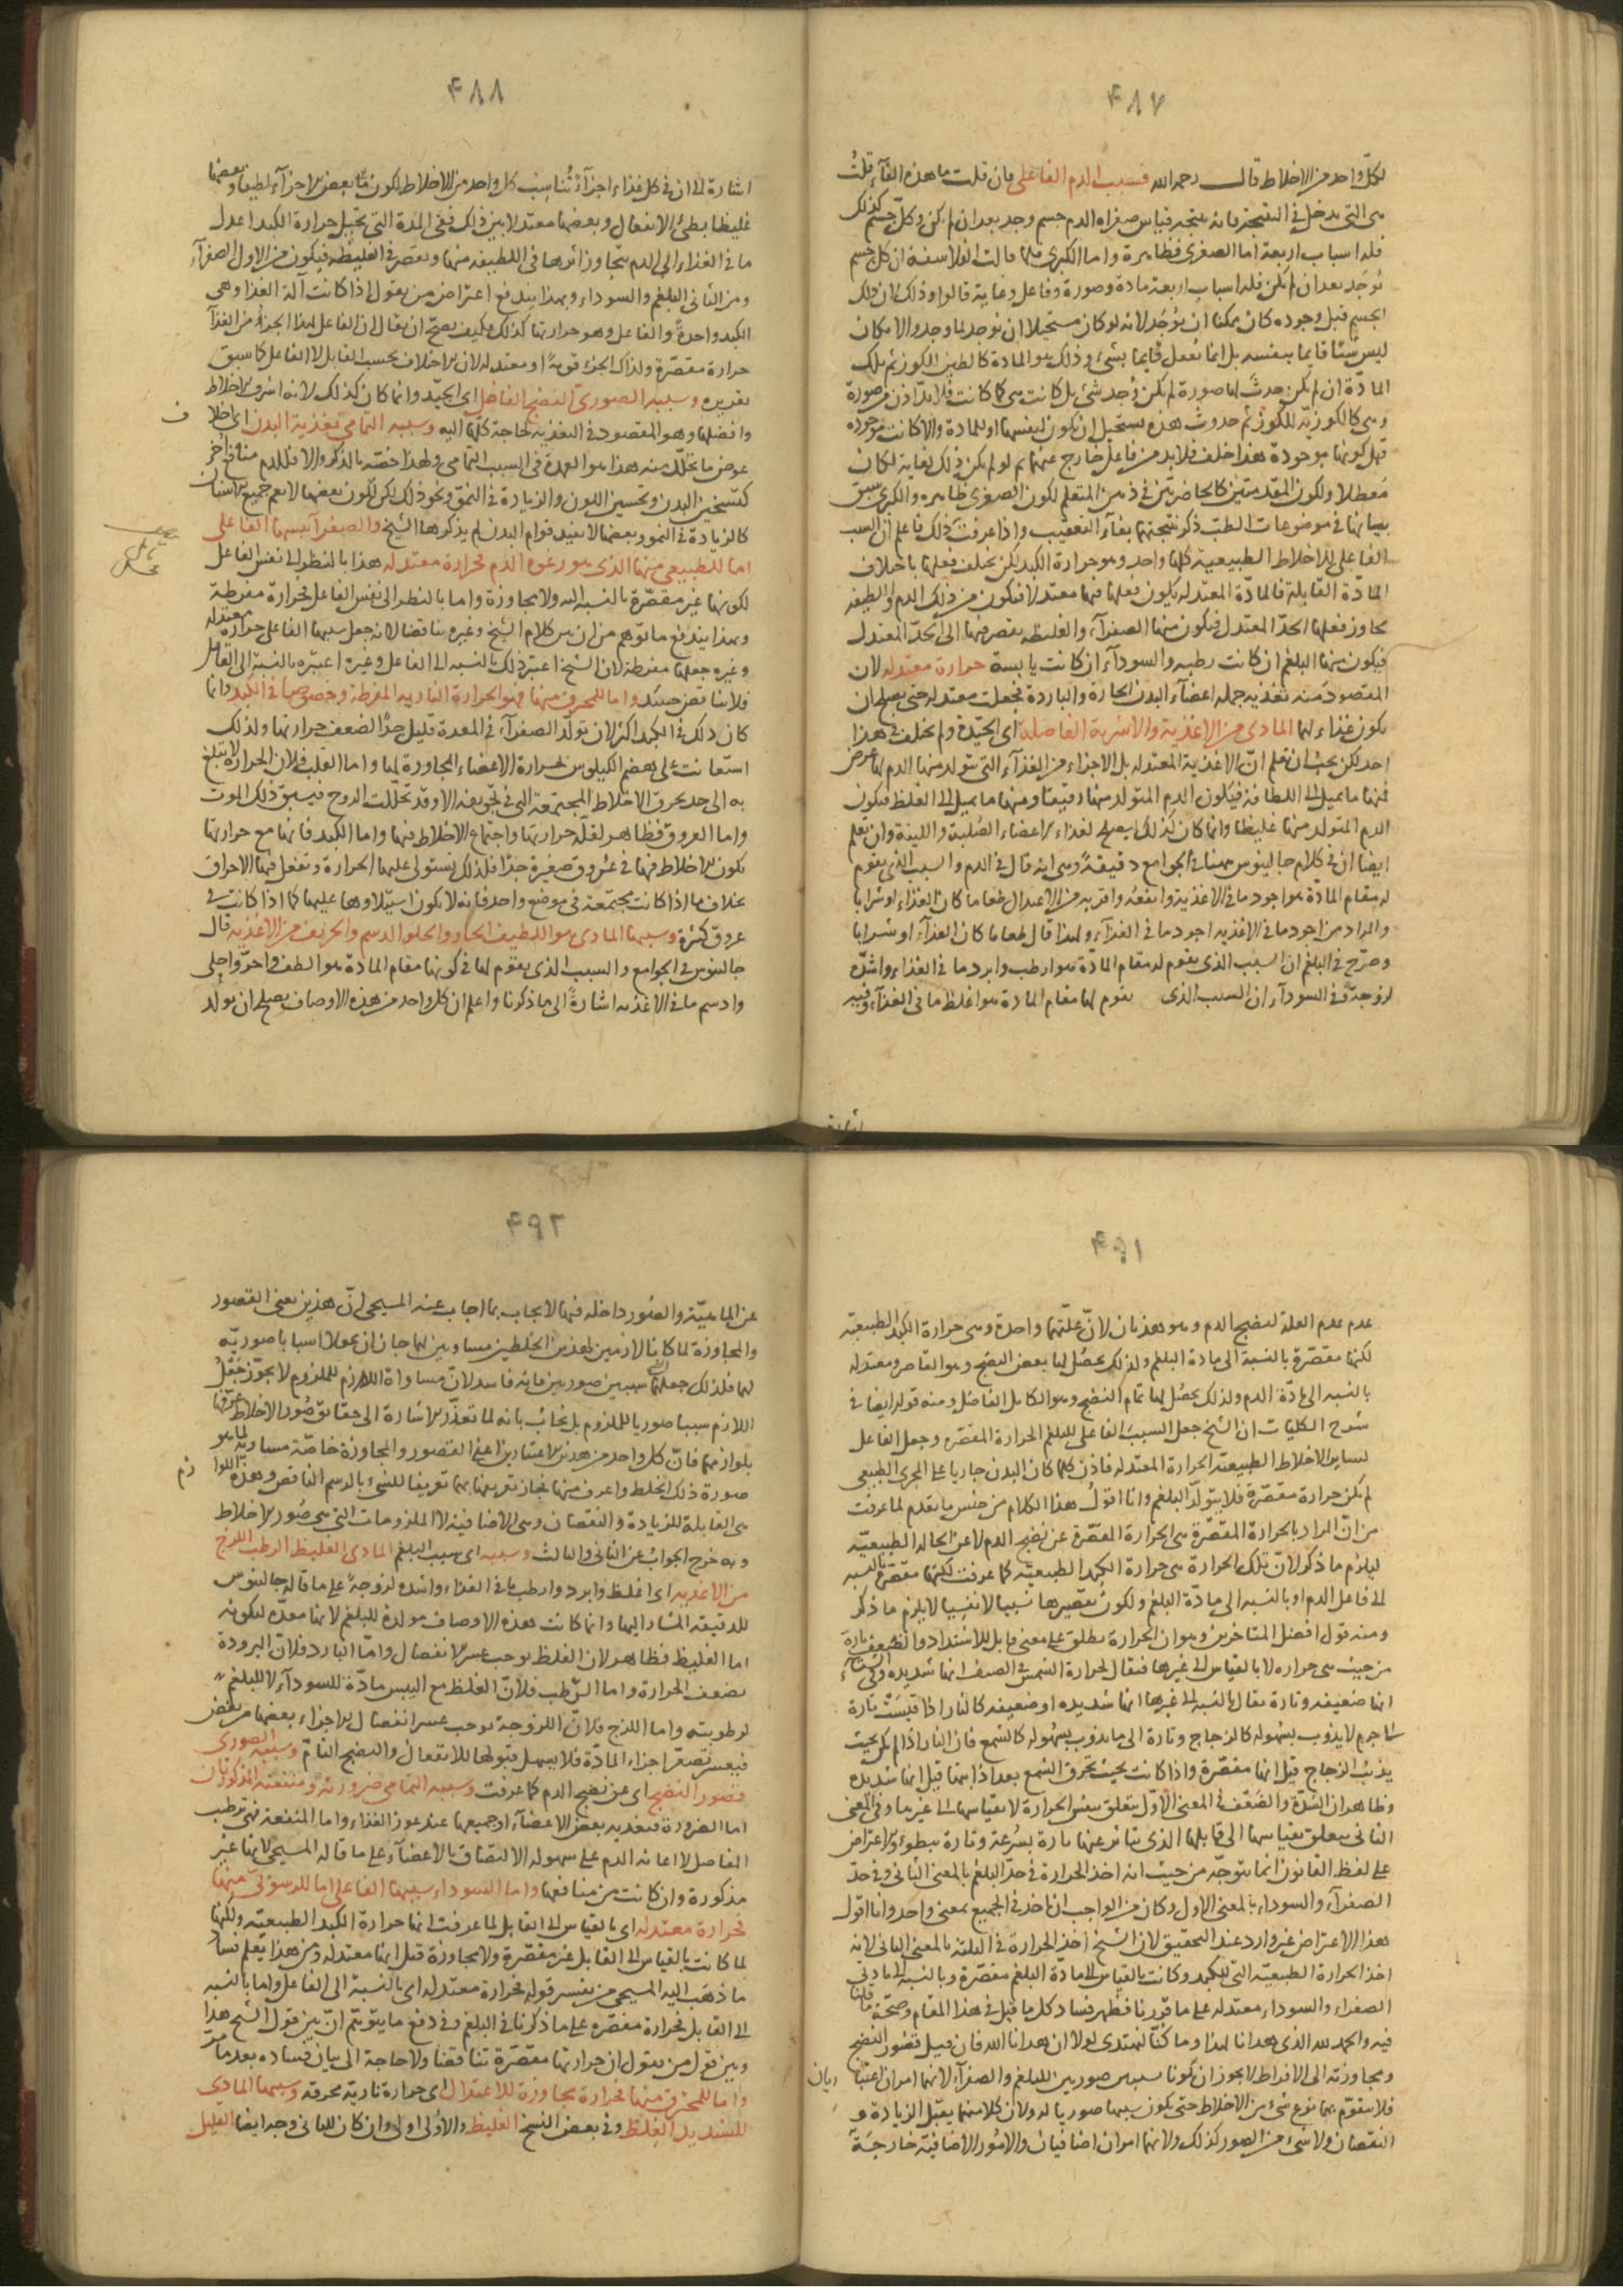 ٤٨٧
لكل واحد من الاخلاط قال رحمه الله فسبب الدم الفاعلى فان قلت ما هذه الفآء قلتُ
هى التى تدخل فى النتيجة فانه نتيجة قياس صغراه الدم جسم وجد بعد ان لم يكن وكل جسم كذلك
فله اسباب اربعة اما الصغرى فظاهرة واما الكبرى فلما قالت الفلاسفة ان كل جسم
يُوجَد بعد ان لم يكن فله اسباب اربعة مادة وصورة وفاعل وغاية قالوا وذلك لان ذلك
الجسم قبل وجوده كان ممكنا ان يُوجَد لانه لو كان مستحيلا ان يوجد لما وجد والامكان
ليس شيئا قايما بنفسه بل انما يُعقل قايما بشىء وذلك هو المادة كالطين للكوز ثم تلك
المادّة ان لم يكن حدثَ لها صورة لم يكن وُجد شىء بل كانت هى كما كانت فلا بدّ اذن من صورة
وهى كالكوزيّة للكوز ثم حدوث هذه يستحيل ان يكون لنفسها او للمادة والا كانت موجودة
قبل كونها موجودة هذا خلف فلا بد من فاعل خارج عنهما ثم لو لم يكن فى ذلك لغاية لكان
مُعطلا ولكون المقدمتين كالحاضرتين فى ذهن المتعلم لكون الصغرى ظاهره والكبرى سبق
بيانها فى موضوعات الطبّ ذكر نتيجتهما بفآء التعقيب واذا عرفتَ ذلك فاعلم ان السبب
الفاعلى للاخلاط الطبيعية كلها واحد وهو حرارة الكبد لكن يختلف فعلها باختلاف
المادّة القابلة فالمادّة المعتدله يكون فعلها فيها معتدلا فيكون من ذلك الدم واللطيفه
يجاوز فعلها الحدّ المعتدل فيكون منها الصفرآء والغليظه يقصر فيها الى الحدّ المعتدل
فيكون منها البلغم ان كانت رطبه والسودآء ان كانت يابسة حرارة معتدله لان
المقصود منه تغذيه جمله اعضآء البدن الحارة والباردة فجعلت معتدله حتى يصلح ان
يكون غذاء لها المادى من الاغذية والاشربة الفاضله اى الجيّدة ولم يختلف فى هذا
احد لكن يجب ان تعلم انّ الاغذية المعتدله بل الاجزاء من الغذآء التى يتولد منها الدم لها عرض
فمنها ما يميل الى اللطافة فيكون الدم المتولد منها رقيقا ومنها ما يميل الى الغلظ فيكون
الدم المتولد منها غليظا وانما كان كذلك ليصلح لغذاء الاعضاء الصلبة واللينة وان تعلم
ايضا ان فى كلام جالينوس ههنا فى الجوامع دقيقةً وهى انه قال فى الدم والسبب الذى يقوم
له مقام المادّة هو اجود ما فى الاغذية وانفعُه واقربه من الاعتدال طعاما كان الغذاء او شرابا
والمراد من اجود ما فى الاغذيه اجود ما فى الغذآء ولهذا قال طعاما كان الغذآء او شرابا
وصرّح فى البلغم ان السبب الذى يقوم له مقام المادّة هو ارطب وابرد ما فى الغذاء واشدّه
لزوجةً وفى السودآء ان السبب الذى يقوم لها مقام المادة هو اغلظ ما فى الغذآء وفيه
اشارة
٤٨٨
اشارة الى ان فى كل غذاء اجزآءً تُناسِبُ كل واحد من الاخلاط لكون بعض الاجزآء لطيفا وبعضها
غليظا بطئ الانفعال وبعضها معتدلا بين ذلك ففى المدة التى تحيل حرارة الكبد اعدل
ما فى الغذاء الى الدم يتجاوز اثرها فى اللطيفه منها ويقصّر فى الغليظه فيكون من الاول الصفرآء
ومن الثانى البلغم والسوداء وبهذا يندفع اعتراض من يقول اذا كانت آلة الغذا وهى
الكبد واحدةً والفاعل وهو حرارتها كذلك فكيف يصحّ ان يقال ان الفاعل لهذا الجزء من الغذآ
حرارة مقصّرة ولذاك الجزء قويّة او معتدله لان الاختلاف بحسب القابل لا الفاعل كما سبق
تقريره وسببه الصورىّ النضج الفاضل اى الجيّد وانما كان كذلك لانه اشرف الاخلاط
وافضلها وهو المقصود فى التغذيه لحاجة كلها اليه وسببه التمامى تغذية البدن اى اخلاف
عوض ما تحلّل منه هذا هو العمدة فى السبب التمامى ولهذا خصّه بالذكر والا فللدم منافع اُخر
كتسخين البدن وتحسين اللون والزيادة فى النموّ ونحو ذلك لكن لكون بعضها لا يعم جميع الاسنان
كالزيادة فى النمو وبعضها لا يفيد قوام البدن لم يذكرها الشيخ والصفرآ سببها الفاعلى
اما للطبيعى منها الذى هو رغوة الدم فحرارة معتدله هذا بالنظر الى نفس الفاعل
لكونها غير مقصّرة بالنسبة اليه ولا مجاوزة واما بالنظر الى نفس الفاعل فحرارة مفرطة
وبهذا يندفع ما توهم من ان بين كلام الشيخ وغيره تناقضا لانه جعل سببها الفاعلى حرارة معتدله
وغيره جعلها مفرطة لان الشيخ اعتبر ذلك بالنسبه الى الفاعل وغيره اعتبره بالنسبة الى القابل
فلا تناقض حينئذ واما للمحرق منها فهو الحرارة الناريه المفرطة وخصوصها فى الكبد وانما
كان ذلك فى الكبد اكثر لان تولّد الصفرآء فى المعدة قليل جدّا لضعف حرارتها ولذلك
استعانت على هضم الكيلوس بحرارة الاعضاء المجاورة لها واما القلب فلان الحرارة لا تبلغ
به الى حد يحرق الاخلاط المجتمعة التى فى تجويفه الا وقد تحلّلت الروح فيسبق ذلك الموت
واما العروق فظاهر لقلّه حرارتها واجتماع الاخلاط فيها واما الكبد فانها مع حرارتها
تكون الاخلاط فيها فى عروق صغيرة جدّا فلذلك تستولى عليها الحرارة وتفعل فيها الاحراق
بخلاف ما اذا كانت مجتمعة فى موضع واحد فانه لا يكون استيلاوها عليها كما اذا كانت فى
عروق كثيرة وسببها المادى هو اللطيف الحار والحلو الدسم والحريف من الاغذيه قال
جالينوس فى الجوامع والسبب الذى يقوم لها فى كونها مقام المادّة هو الطف واحرّ واحلى
وادسم ما فى الاغذيه اشارةً الى ما ذكرنا واعلم ان كل واحد من هذه الاوصاف يصلح ان يولد
٤٩١
عدم عدم العلة لنضج الدم وهو هذيان لانّ علّتهما واحدة وهى حرارة الكبد الطبيعيّه
لكنها مقصّرة بالنسبة الى مادة البلغم ولذلك يحصُل لها بعض النضج وهو القاصر ومعتدله
بالنسبه الى مادّة الدم ولذلك يحصُل لها تمام النضج وهو الكامل الفاضل ومنه قوله ايضا فى
شرح الكليات ان الشيخ جعل السببَ الفاعلى للبلغم الحرارة المقصّره وجعل الفاعل
لساير الاخلاط الطبيعيّه الحرارة المعتدله فاذن كلما كان البدن جاريا على المجرى الطبيعى
لم يكن حرارة مقصّرة فلا يتولّد البلغم وانا اقولُ هذا الكلام من جنس ما تقدم لما عرفت
من انّ المراد بالحرارة المقصّرة هى الحرارة المقصّرة عن نضج الدم لا عن الحالة الطبيعيّه
ليلزم ما ذكر لانّ تلك الحرارة هى حرارة الكبد الطبيعيّه كما عرفت لكنها مقصّرة بالنسبه
الى فاعل الدم او بالنسبه الى مادّة البلغم ولكون تقصيرها نسبيا لا نفسيا لا يلزم ما ذكر
ومنه قول افضل المتاخرين وهو ان الحرارة تطلق على معنى قابل للاشتداد والضعف تارةً
من حيث هى حراره لا بالقياس الى غيرها فيقال لحرارة الشمس فى الصيف انها شديده وفى الشتآء
انها ضعيفه وتارة يقال بالنسبه الى غيرها انها شديده او ضعيفه كالنار اذا قيسَتْ تارة
الى جرم لا يذوب بسهوله كالزجاج وتارة الى ما يذوب بسهوله كالشمع فان النار اذا لم تكن بحيث
يذيبُ الزجاج قيل انها مقصّرة واذا كانت بحيث تحرق الشمع بعد اذابتها قيل انها شديده
وظاهر ان الشدّة والضعف فى المعنى الاوّل يتعلق بنفس الحرارة لا بقياسها الى غيرها وفى المعنى
الثانى يتعلق بقياسها الى قابلها الذى يتاثر عنها تارة بسُرعة وتارة ببطوء والاعتراض
على لفظ القانون انما يتوجّه من حيث انه اخذ الحرارة فى حدّ البلغم بالمعنى الثانى وفى حدّ
الصفرآء والسوداء بالمعنى الاول وكان من الواجب ان ياخذ فى الجميع بمعنى واحد وانا اقول
هذا الاعتراض غير وارد عند التحقيق لان الشيخ اخذ الحرارة فى الثلثة بالمعنى الثانى لانه
اخذ الحرارة الطبيعيّة التى للكبد وكانت بالقياس الى مادّة البلغم مقصّرة وبالنسبة الى مادتى
الصفراء والسوداء معتدله على ما قرّرنا فظهر فساد كل ما قيل فى هذا المقام وصحّة ما قلنا
فيه والحمد لله الذى هدانا لهذا وما كنّا لنهتدى لولا ان هدانا الله فان قيل قصُور النضج
ومجاوزته الى الافراط لا يجوز ان يكونا سببين صوريين للبلغم والصفرآء لانهما امران اعتباريان
فلا يتقوّم بهما نوع شىء من الاخلاط حتى يكون سببها صوريا له ولان كلا منهما يقبَل الزيادة و
النقصان ولا شىء من الصور كذلك ولانهما امران اضافيان والامُور الاضافيّة خارجةَ
٤٩٢
عن الماهيّة والصُور داخله فيها لا يجاب بما اجاب عنه المسيحى انّ هذين يعنى القصور
والمجاوزة لما كانا لازمين لهذين الخلطين مساويين لهما جاز ان يجعلا اسبابا صوريّه
لهما فلذلك جعلهما الشيخ سببين صوريين فانه فاسد لانّ مساواة اللازم للملزوم لا يجوّز جَعْلَ
اللازم سببا صوريا للملزوم بل يُجابُ بانه لما تعذّر الاشارة الى حقايق صُور الاخلاط عرّفها
بلوازمها فانّ كل واحد من هذين الاعتبارين اعنى القصور والمجاوزة خاصّة مساوية لما هو
صورة ذلك الخلط واعرف منها فجاز تعريفها بها تعريفا للشىء بالرسم الناقص وهذه اللوازم
هى القابلة للزيادة والنقصان وهى الاضافية لا الملزومات التى هى صُور الاخلاط
وبه خرج الجوابُ عن الثانى والثالث وسببه اى سبب البلغم المادى الغليظ الرطب اللزج
من الاغذيه اى اغلظ وابرد وارطب ما فى الغذاء واشده لزوجةً على ما قاله جالينوس
للدقيقه المشار اليها وانما كانت هذه الاوصاف مولدة للبلغم لانها معدّه لتكونه
اما الغليظ فظاهر لان الغلظ يوجب عسر الانفصال وامّا البارد فلانّ البرودة
تضعف الحرارة واما الرّطب فلانّ الغلظ مع اليبس مادّة للسودآء لا للبلغم
لرطوبته واما اللزج فلانّ اللزوجة توجب عسر انفصال الاجزاء بعضها من بعض
فيعسر تصغّر اجزاء المادّة فلا يسهل قبولها للانفعال والنضج التامّ وسببه الصورى
قصور النضج اى عن نضج الدم كما عرفت وسببه التمامى ضرورته ومنفعته المذكورتان
اما الضرورة فتغذيه بعض الاعضآء او جميعها عند عوز الغذاء واما المنفعة فهى ترطيب
المفاصل لا اعانة الدم على سهوله الالتصاق بالاعضآء على ما قاله المسيحى لانها غير
مذكورة وان كانت من منافعها واما السوداء سببها الفاعلى اما للرسوبىّ منها
فحرارة معتدله اى بالقياس الى القابل لما عرفت انها حرارة الكبد الطبيعيّه ولكنها
لما كانت بالقياس الى القابل غير مقصّرة ولا مجاوزة قيل انها معتدله ومن هذا يعلم فساد
ما ذهبَ اليه المسيحى من تفسير قوله فحرارة معتدله اى بالنسبة الى الفاعل واما بالنسبه
الى القابل فحرارة مقصّره على ما ذكرنا فى البلغم وفى دفع ما يتوهّم انّ بين قول الشيخ هذا
وبين قول من يقول ان حرارتها مقصّرة تناقضا ولا حاجة الى بيان فساده بعد ما مرّ
واما للمحترق منها فحرارة مجاوزة للاعتدال اى حرارة ناريّة محرقه وسببها المادى
للشديد الغلظ وفى بعض النسخ الغليظ والاوُلى اولى وان كان للثانى وجه ايضا القليل